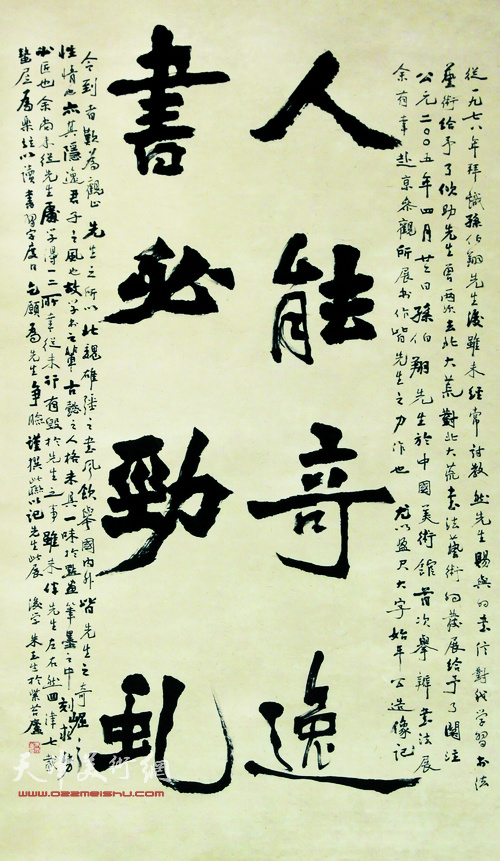 人能奇逸
書必勁虬
從一九七八年拜識孫伯翔先生後雖未經常討教
然先生賜與的書信對我學習書法
藝術給予了傾助先生曾兩次去北大荒對北大荒書法藝術的發展給予了關注
公元二〇〇五年四月廿三日孫伯翔先生於中國美術館首次舉辦書法展
余有幸赴京參觀所展書作皆先生之力作也
尤以盈尺大字始平公造像記
令到者歎為觀止先生之所以北魏雄強之書風飲譽國內外皆先生之奇崛
性情也亦其隱逸君子之風也故學書之筆古懿之人格未具一味於點畫筆墨之中刻求
小匠也余尚未從先生處學得一二所幸從未行有毀於先生之事雖未伴先生左右然四津七
為樂經以讀書習字度日只願為先生爭臉謹撰此聯以記先生此展
後學朱玉生於紫苔廬
天步美術網
www.ozzmeishu.com